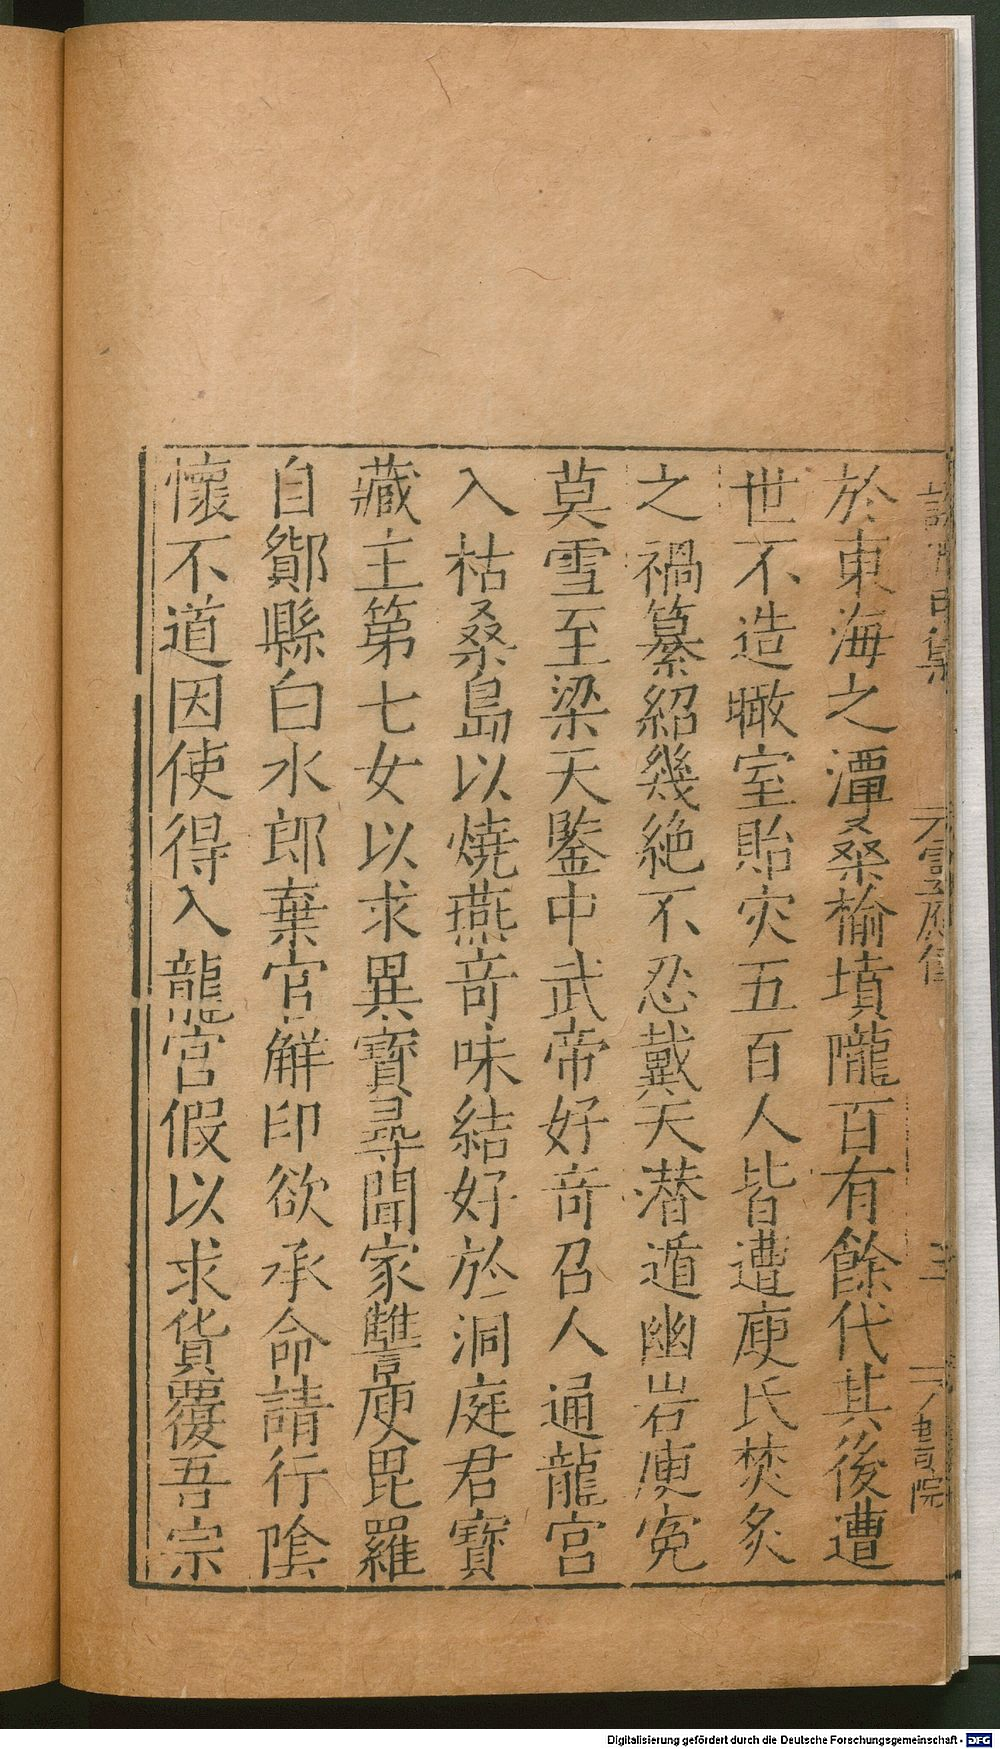 於東海之潭桑榆墳隴百有餘代其後遭
世不造瞰室貽灾五百人皆遭庾氏焚炙
之禍纂紹幾絶不忍戴天潜遁幽岩庾寃
莫雪至梁天鑒中武帝好竒召人通龍宫
入枯桑島以燒燕竒味結好於洞庭君寳
藏主第七女以求異寳尋聞家讐庾毘羅
自鄮縣白水郎棄官解印欲承命請行隂
懷不道因使得入龍宫假以求貨覆吾宗
書院
Digitalisierung gefördert durch die Deutsche Forschungsgemeinschaft - DFG